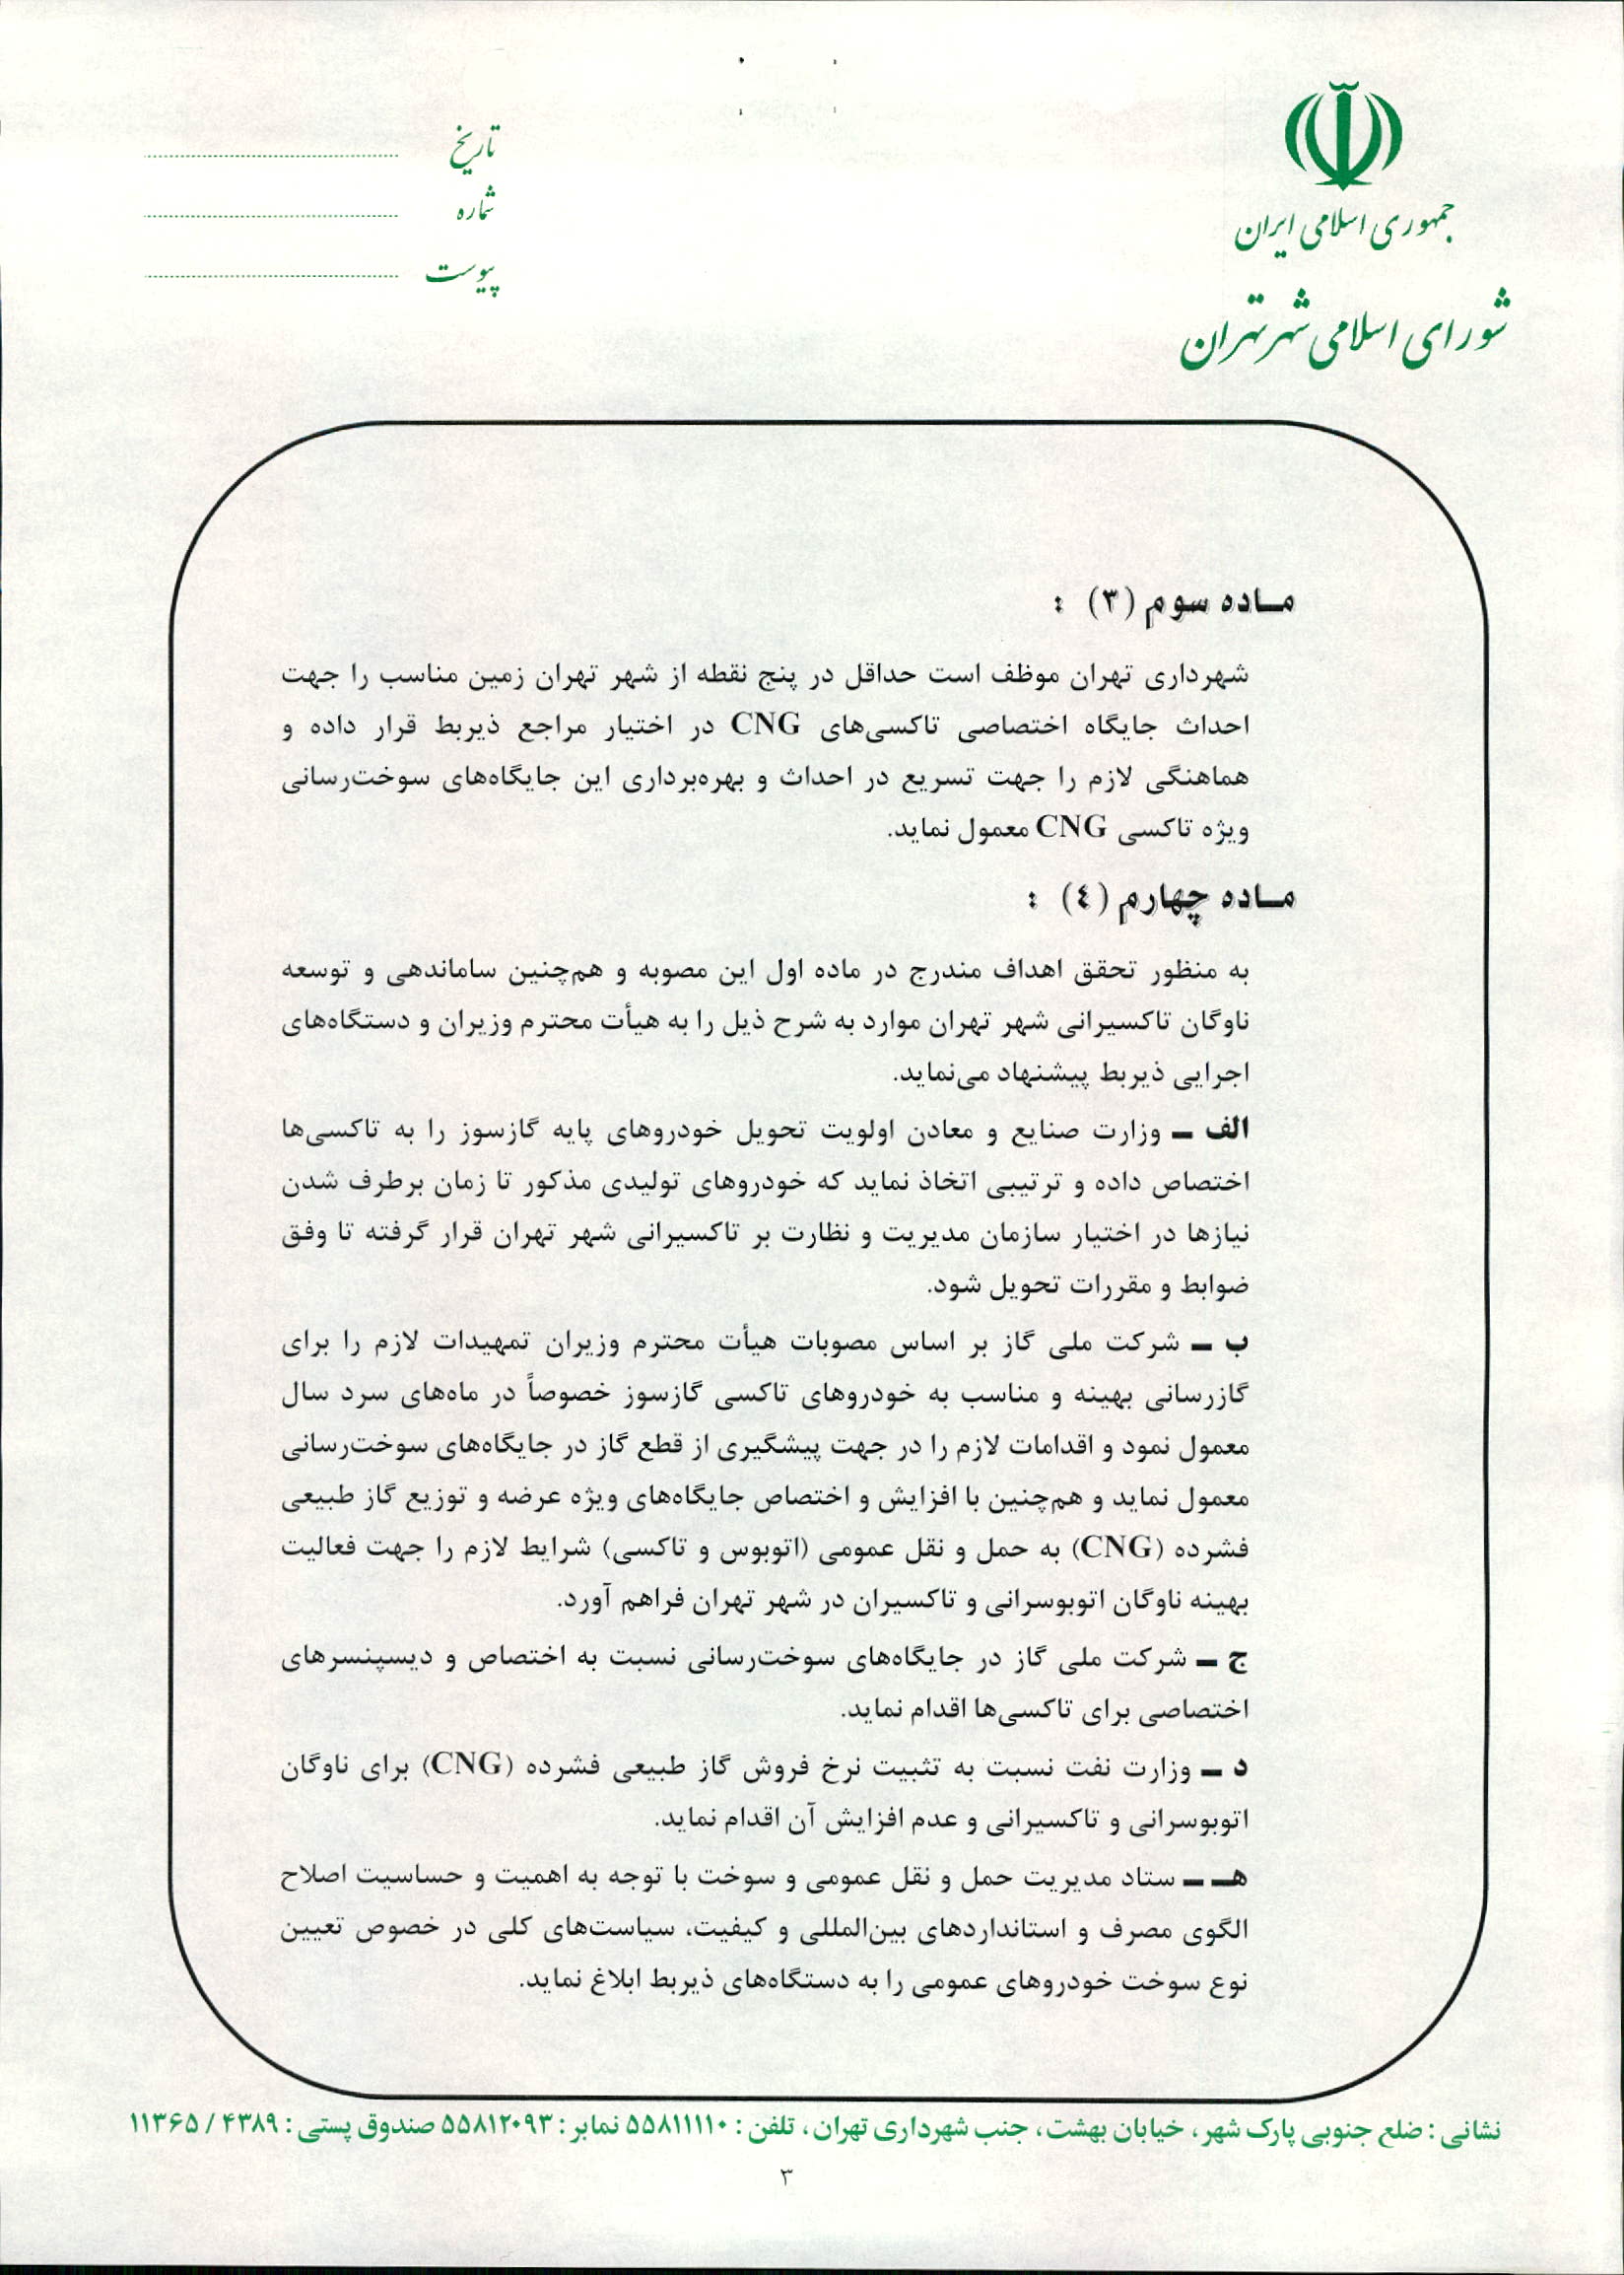 جمهوری اسلامی ایران
شورای اسلامی شهر تهران
تاریخ
شماره
پیوست
مــاده سوم (۳) :
شهرداری تهران موظف است حداقل در پنج نقطه از شهر تهران زمین مناسب را جهت
احداث جایگاه اختصاصی تاکسی‌های CNG در اختیار مراجع ذیربط قرار داده و
هماهنگی لازم را جهت تسریع در احداث و بهره‌برداری این جایگاه‌های سوخت‌رسانی
ویژه تاکسی CNG معمول نماید.
مــاده چهارم (٤) :
به منظور تحقق اهداف مندرج در ماده اول این مصوبه و هم‌چنین ساماندهی و توسعه
ناوگان تاکسیرانی شهر تهران موارد به شرح ذیل را به هیأت محترم وزیران و دستگاه‌های
اجرایی ذیربط پیشنهاد می‌نماید.
الف – وزارت صنایع و معادن اولویت تحویل خودروهای پایه گازسوز را به تاکسی‌ها
اختصاص داده و ترتیبی اتخاذ نماید که خودروهای تولیدی مذکور تا زمان برطرف شدن
نیازها در اختیار سازمان مدیریت و نظارت بر تاکسیرانی شهر تهران قرار گرفته تا وفق
ضوابط و مقررات تحویل شود.
ب – شرکت ملی گاز بر اساس مصوبات هیأت محترم وزیران تمهیدات لازم را برای
گازرسانی بهینه و مناسب به خودروهای تاکسی گازسوز خصوصاً در ماه‌های سرد سال
معمول نمود و اقدامات لازم را در جهت پیشگیری از قطع گاز در جایگاه‌های سوخت‌رسانی
معمول نماید و هم‌چنین با افزایش و اختصاص جایگاه‌های ویژه عرضه و توزیع گاز طبیعی
فشرده (CNG) به حمل و نقل عمومی (اتوبوس و تاکسی) شرایط لازم را جهت فعالیت
بهینه ناوگان اتوبوسرانی و تاکسیران در شهر تهران فراهم آورد.
ج – شرکت ملی گاز در جایگاه‌های سوخت‌رسانی نسبت به اختصاص و دیسپنسرهای
اختصاصی برای تاکسی‌ها اقدام نماید.
د – وزارت نفت نسبت به تثبیت نرخ فروش گاز طبیعی فشرده (CNG) برای ناوگان
اتوبوسرانی و تاکسیرانی و عدم افزایش آن اقدام نماید.
هـ – ستاد مدیریت حمل و نقل عمومی و سوخت با توجه به اهمیت و حساسیت اصلاح
الگوی مصرف و استانداردهای بین‌المللی و کیفیت، سیاست‌های کلی در خصوص تعیین
نوع سوخت خودروهای عمومی را به دستگاه‌های ذیربط ابلاغ نماید.
نشانی : ضلع جنوبی پارک شهر ، خیابان بهشت ، جنب شهرداری تهران ، تلفن : ۵۵۸۱۱۱۱۰ نمابر : ۵۵۸۱۲۰۹۳ صندوق پستی : ۴۳۸۹ / ۱۱۳۶۵
۳